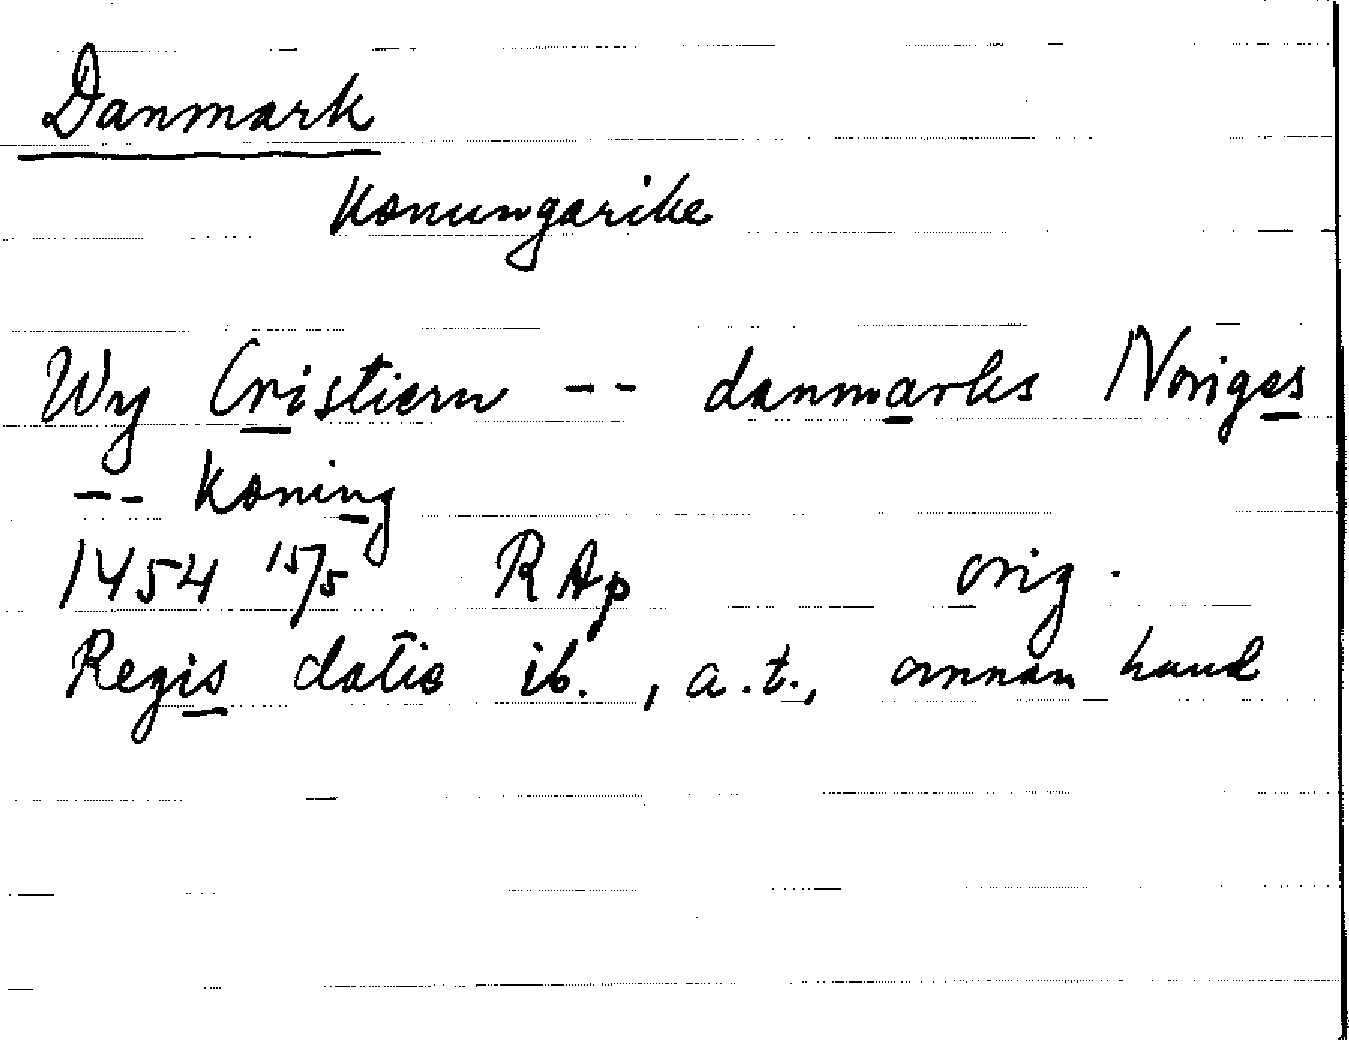 Danmark
Konungarike
Wy Cristiern -- danmarks Noriges
-- Koning
1454 15/5 RAp orig.
Regis datie ib., a.t., annan hand